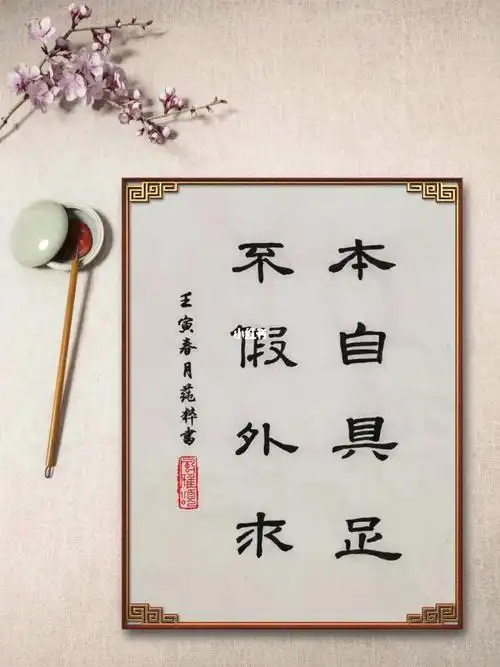 本自具足
不假外求
壬寅春月苑粹書
小红书